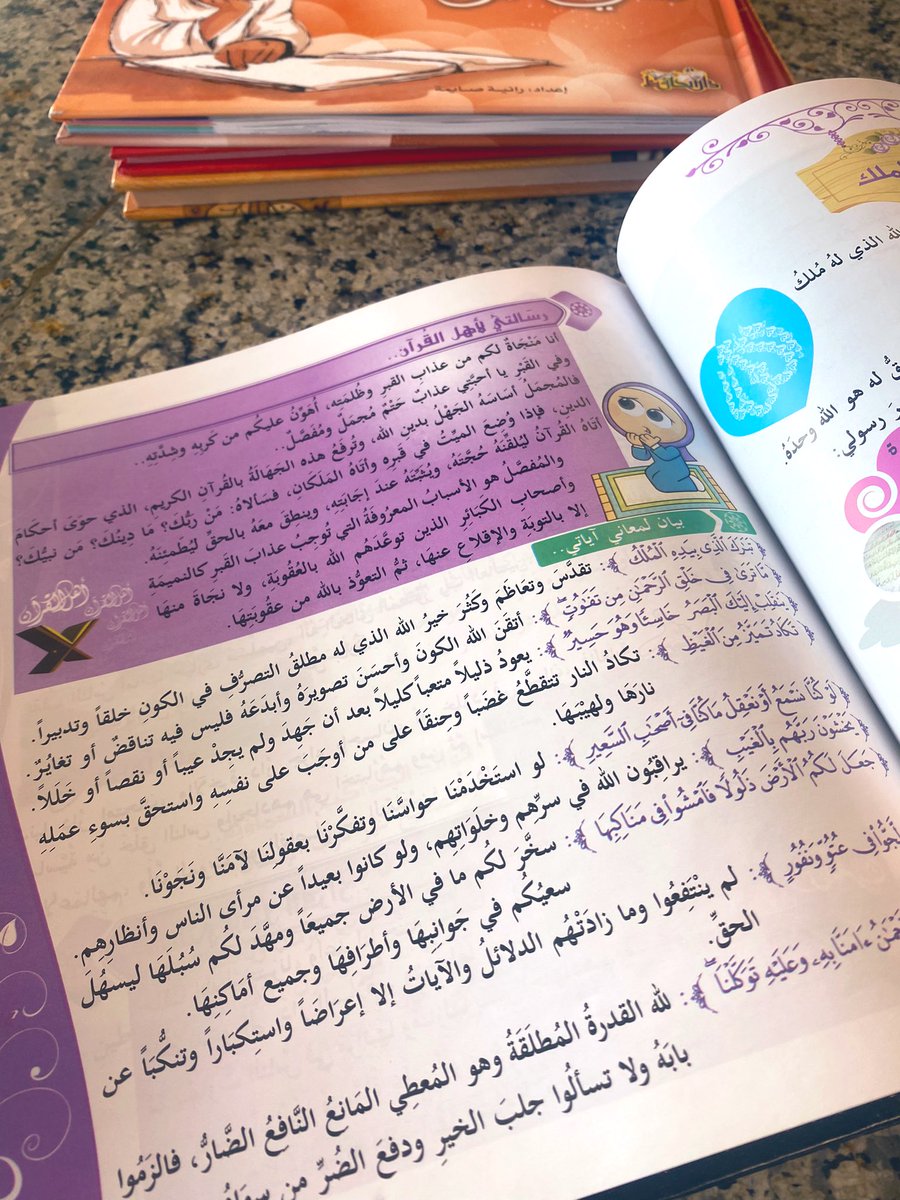 إعداد: رانية صايمة
الملك
الله الذي لهُ مُلكُ
له هو الله وحدَهُ.
رسولي:
رسَالتيْ لأهل القُرآن..
أنا مَنْجَاةٌ لكم من عذابِ القبرِ وظُلمَتِه، أُهوِّنُ عليكُم من كَربِهِ وشِدَّتِهِ..
وفي القَبْرِ يا أحبَّتِي عذابٌ حَتْمٌ مُجمَلٌ ومُفَصَّلٌ..
فالمُجمَلُ أسَاسُهُ الجَهْلُ بدينِ الله، وتُرفَعُ هذه الجَهَالَةُ بالقُرآنِ الكريم، الذي حوَى أحكَامَ
الدين، فإذا وُضِعَ الميِّتُ في قبرِه وأتاهُ المَلَكَانِ، فسَألاهُ: مَنْ رَبُّكَ؟ مَا دِينُكَ؟ مَن نبيُّكَ؟
أتاهُ القُرآنُ ليُلقِّنَهُ حُجَّتَهُ، ويُثبِّتَهُ عندَ إجَابَتِهِ، وينطِقَ معَهُ بالحقِّ ليُطَمئِنَهُ
والمُفصَّلُ هو الأسبابُ المعروفَةُ التي تُوجِبُ عذابَ القَبرِ كالنميمَةِ
وأصحابِ الكبَائِرِ الذين توعَّدَهم الله بالعُقُوبَةِ، ولا نجاةَ منها
إلا بالتوبَةِ والإقلاعِ عنهَا، ثمَّ التعوُّذِ بالله من عقوبَتِهَا.
أهل القرآن
بيان لمعاني آياتي..
﴿تَبَٰرَكَ ٱلَّذِى بِيَدِهِ ٱلْمُلْكُ﴾: تقدَّسَ وتعاظَمَ وكَثُرَ خيرُ الله الذي له مطلقُ التصرُّفِ في الكونِ خلقاً وتدبيراً.
﴿مَّا تَرَىٰ فِى خَلْقِ ٱلرَّحْمَٰنِ مِن تَفَٰوُتٍ﴾: أتقنَ الله الكونَ وأحسَنَ تصويرَهُ وأبدَعَهُ فليس فيه تناقضٌ أو تغايُرٌ.
﴿يَنقَلِبْ إِلَيْكَ ٱلْبَصَرُ خَاسِئًا وَهُوَ حَسِيرٌ﴾: يعودُ ذليلاً متعباً كليلاً بعد أن جَهِدَ ولم يجدْ عيباً أو نقصاً أو خَلَلاً.
﴿تَكَادُ تَمَيَّزُ مِنَ ٱلْغَيْظِ﴾: تكادُ النار تتقطَّعُ غضَباً وحنَقاً على من أوجَبَ على نفسِهِ واستحقَّ بسوءِ عمَلِهِ
نارَهَا ولهيبَهَا.
﴿لَوْ كُنَّا نَسْمَعُ أَوْ نَعْقِلُ مَا كُنَّا فِىٓ أَصْحَٰبِ ٱلسَّعِيرِ﴾: لو استَخْدَمْنَا حواسَّنَا وتفكَّرْنَا بعقولِنَا لآمنَّا ونَجَوْنَا.
﴿يَخْشَوْنَ رَبَّهُم بِٱلْغَيْبِ﴾: يراقِبُون الله في سرِّهم وخلَواتِهِم، ولو كانوا بعيداً عن مرأى الناس وأنظارِهِم.
﴿جَعَلَ لَكُمُ ٱلْأَرْضَ ذَلُولًا فَٱمْشُوا۟ فِى مَنَاكِبِهَا﴾: سخَّرَ لكُم ما في الأرض جميعَاً ومهَّدَ لكُم سُبُلَهَا ليسهُلَ
سعيُكُم في جَوانِبِهَا وأطرَافِهَا وجميع أمَاكِنِهَا.
لَّجُّوا۟ فِى عُتُوٍّ وَنُفُورٍ﴾: لم ينْتفِعُوا وما زادَتْهُم الدلائلُ والآياتُ إلا إعرَاضَاً واستِكبَاراً وتنكُّبَاً عن
الحقِّ.
ٱلرَّحْمَٰنُ ءَامَنَّا بِهِۦ وَعَلَيْهِ تَوَكَّلْنَا﴾: لله القدرةُ المُطلَقَةُ وهو المُعطِي المَانِعُ النَّافِعُ الضَّارُّ، فالزَمُوا
بابَهُ ولا تسألُوا جلبَ الخيرِ ودفعَ الضُرِّ من سِوَاهُ